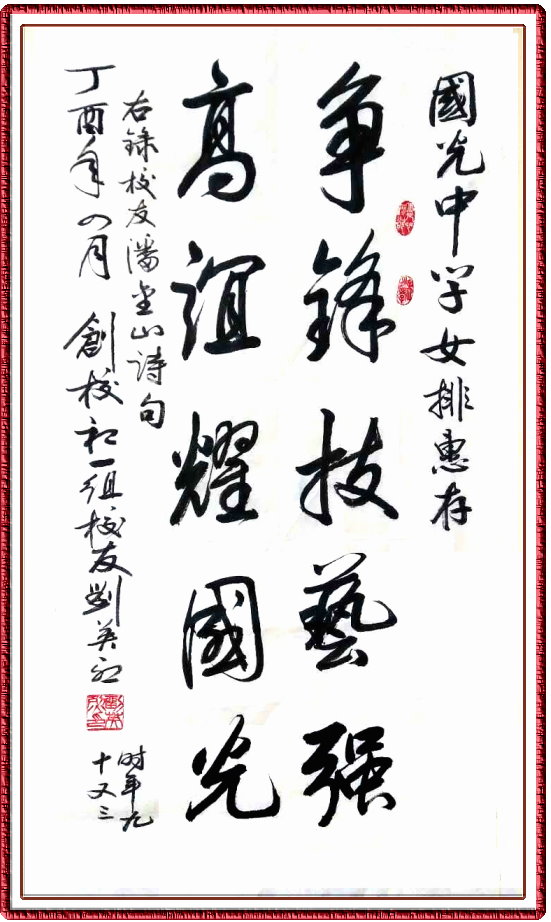 國光中学女排惠存
争鋒技藝强
高誼耀國光
右録校友潘坐山詩句
丁酉年四月 創校初一组校友劉英初
时年九
十又三